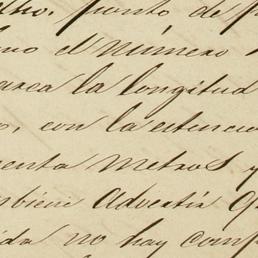 punto de
no el número
area la longitud
o, con la estencio
enta metros y
mbien advertir q
ida no hay comp